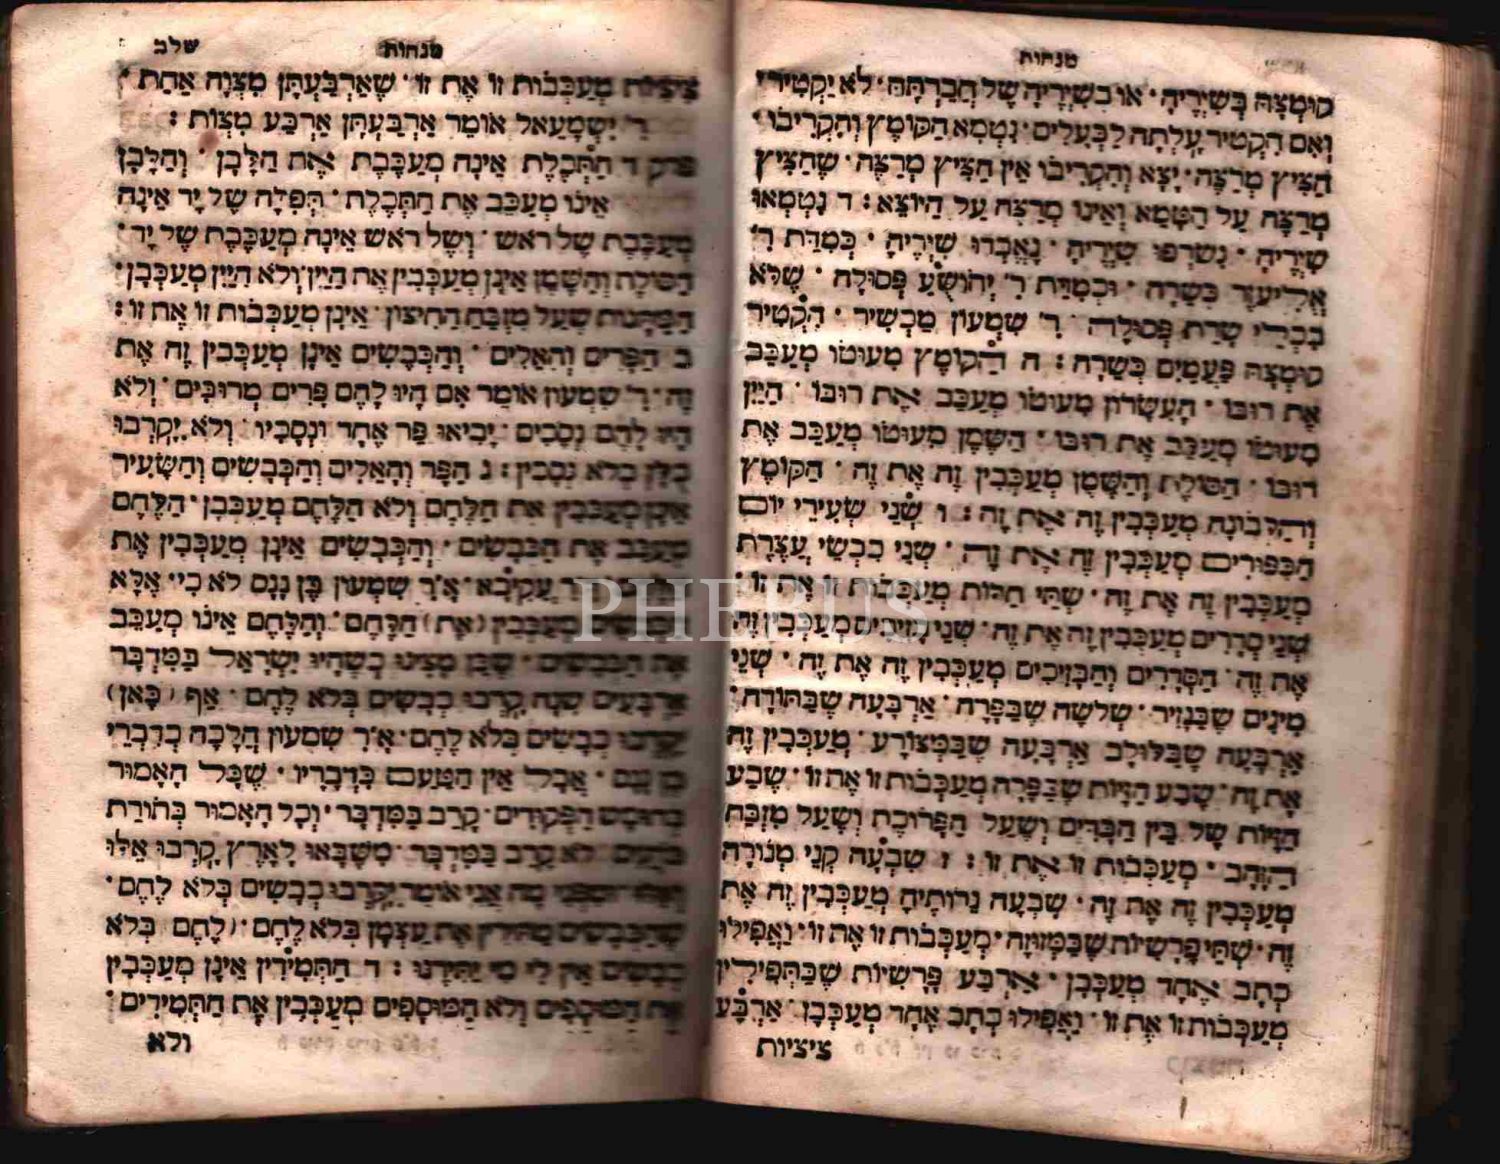 מנחות
קוּמְצָהּ בְּשִׁירֶיהָ · אוֹ בְּשִׁירֶיהָ שֶׁל חֲבֶרְתָּהּ · לֹא יַקְטִיר ·
וְאִם הִקְטִיר עָלְתָה לַבְּעָלִים · נִטְמָא הַקּוֹמֶץ וְהִקְרִיבוֹ ·
הַצִּיץ מְרַצֶּה · יָצָא וְהִקְרִיבוֹ אֵין הַצִּיץ מְרַצֶּה · שֶׁהַצִּיץ
מְרַצֶּה עַל הַטָּמֵא וְאֵינוֹ מְרַצֶּה עַל הַיּוֹצֵא : ד נִטְמְאוּ
שִׁירֶיהָ · נִשְׂרְפוּ שִׁירֶיהָ · נֶאֶבְדוּ שִׁירֶיהָ · כְּמִדַּת ר'
אֱלִיעֶזֶר כְּשֵׁרָה · וּכְמִדַּת ר' יְהוֹשֻׁעַ פְּסוּלָה · שֶׁלֹּא
בִּכְלִי שָׁרֵת פְּסוּלָה · ר' שִׁמְעוֹן מַכְשִׁיר · הִקְטִיר
קוּמְצָהּ פַּעֲמַיִם כְּשֵׁרָה : ה הַקּוֹמֶץ מִעוּטוֹ מְעַכֵּב
אֶת רוּבּוֹ · הָעִשָּׂרוֹן מִעוּטוֹ מְעַכֵּב אֶת רוּבּוֹ · הַיַּיִן
מִעוּטוֹ מְעַכֵּב אֶת רוּבּוֹ · הַשֶּׁמֶן מִעוּטוֹ מְעַכֵּב אֶת
רוּבּוֹ · הַסּוֹלֶת וְהַשֶּׁמֶן מְעַכְּבִין זֶה אֶת זֶה · הַקּוֹמֶץ
וְהַלְּבוֹנָה מְעַכְּבִין זֶה אֶת זֶה : ו שְׁנֵי שְׂעִירֵי יוֹם
הַכִּפּוּרִים מְעַכְּבִין זֶה אֶת זֶה · שְׁנֵי כִבְשֵׂי עֲצֶרֶת
מְעַכְּבִין זֶה אֶת זֶה · שְׁתֵּי חַלּוֹת מְעַכְּבוֹת זוֹ אֶת זוֹ ·
שְׁנֵי סְדָרִים מְעַכְּבִין זֶה אֶת זֶה · שְׁנֵי בָזִיכִים מְעַכְּבִין זֶה
אֶת זֶה · הַסְּדָרִים וְהַבָּזִיכִים מְעַכְּבִין זֶה אֶת זֶה · שְׁנֵי
מִינִים שֶׁבַּנָּזִיר · שְׁלֹשָׁה שֶׁבַּפָּרָה · אַרְבָּעָה שֶׁבַּתּוֹדָה ·
אַרְבָּעָה שֶׁבַּלּוּלָב אַרְבָּעָה שֶׁבַּמְּצוֹרָע · מְעַכְּבִין זֶה
אֶת זֶה · שֶׁבַע הַזָּיוֹת שֶׁבַּפָּרָה מְעַכְּבוֹת זוֹ אֶת זוֹ · שֶׁבַע
הַזָּיוֹת שֶׁל בֵּין הַבַּדִּים וְשֶׁעַל הַפָּרוֹכֶת וְשֶׁעַל מִזְבַּח
הַזָּהָב · מְעַכְּבוֹת זוֹ אֶת זוֹ : ז שִׁבְעָה קְנֵי מְנוֹרָה
מְעַכְּבִין זֶה אֶת זֶה · שִׁבְעָה נֵרוֹתֶיהָ מְעַכְּבִין זֶה אֶת
זֶה · שְׁתֵּי פָרָשִׁיּוֹת שֶׁבַּמְּזוּזָה · מְעַכְּבוֹת זוֹ אֶת זוֹ · וַאֲפִילוּ
כְּתָב אֶחָד מְעַכְּבָן · אַרְבַּע פָּרָשִׁיּוֹת שֶׁבַּתְּפִילִּין
מְעַכְּבוֹת זוֹ אֶת זוֹ · וַאֲפִילוּ כְּתָב אֶחָד מְעַכְּבָן · אַרְבַּע
ציציות
מנחות שלב
צִיצִיּוֹת מְעַכְּבוֹת זוֹ אֶת זוֹ · שֶׁאַרְבַּעְתָּן מִצְוָה אַחַת ·
ר' יִשְׁמָעֵאל אוֹמֵר אַרְבַּעְתָּן אַרְבַּע מִצְוֹת :
פרק ד הַתְּכֵלֶת אֵינָהּ מְעַכֶּבֶת אֶת הַלָּבָן · וְהַלָּבָן
אֵינוֹ מְעַכֵּב אֶת הַתְּכֵלֶת · תְּפִלָּה שֶׁל יָד אֵינָהּ
מְעַכֶּבֶת שֶׁל רֹאשׁ · וְשֶׁל רֹאשׁ אֵינָהּ מְעַכֶּבֶת שֶׁל יָד ·
הַסּוֹלֶת וְהַשֶּׁמֶן אֵינָן מְעַכְּבִין אֶת הַיַּיִן וְלֹא הַיַּיִן מְעַכְּבָן ·
הַמַּתָּנוֹת שֶׁעַל מִזְבֵּחַ הַחִיצוֹן · אֵינָן מְעַכְּבוֹת זוֹ אֶת זוֹ :
ב הַפָּרִים וְהָאֵלִים · וְהַכְּבָשִׂים אֵינָן מְעַכְּבִין זֶה אֶת
זֶה · ר' שִׁמְעוֹן אוֹמֵר אִם הָיוּ לָהֶם פָּרִים מְרוּבִּים · וְלֹא
הָיוּ לָהֶם נְסָכִים · יָבִיאוּ פַּר אֶחָד וּנְסָכָיו · וְלֹא יִקְרְבוּ
כֻלָּן בְּלֹא נְסָכִין : ג הַפָּר וְהָאֵלִים וְהַכְּבָשִׂים וְהַשָּׂעִיר
אֵינָן מְעַכְּבִין אֶת הַלֶּחֶם וְלֹא הַלֶּחֶם מְעַכְּבָן · הַלֶּחֶם
מְעַכֵּב אֶת הַכְּבָשִׂים · וְהַכְּבָשִׂים אֵינָן מְעַכְּבִין אֶת
ר' עֲקִיבָא · א"ר שִׁמְעוֹן בֶּן נַנָּס לֹא כִי · אֶלָּא
הַכְּבָשִׂים מְעַכְּבִין (אֶת) הַלֶּחֶם · וְהַלֶּחֶם אֵינוֹ מְעַכֵּב
אֶת הַכְּבָשִׂים · שֶׁכֵּן מָצִינוּ כְּשֶׁהָיוּ יִשְׂרָאֵל בַּמִּדְבָּר
אַרְבָּעִים שָׁנָה קָרְבוּ כְבָשִׂים בְּלֹא לֶחֶם · אַף (כָּאן)
יִקְרְבוּ כְבָשִׂים בְּלֹא לֶחֶם · א"ר שִׁמְעוֹן הֲלָכָה כְדִבְרֵי
בֶן נַנָּס · אֲבָל אֵין הַטַּעַם כִּדְבָרָיו · שֶׁכָּל הָאָמוּר
בְּחוּמַּשׁ הַפְּקוּדִים · קָרֵב בַּמִּדְבָּר · וְכָל הָאָמוּר בְּתוֹרַת
כֹּהֲנִים לֹא קָרֵב בַּמִּדְבָּר · מִשֶּׁבָּאוּ לָאָרֶץ קָרְבוּ אֵלּוּ
וָאֵלּוּ · וּמִפְּנֵי מָה אֲנִי אוֹמֵר יִקְרְבוּ כְבָשִׂים בְּלֹא לֶחֶם ·
שֶׁהַכְּבָשִׂים מַתִּירִין אֶת עַצְמָן בְּלֹא לֶחֶם · (לֶחֶם) בְּלֹא
כְבָשִׂים אֵין לִי מִי יַתִּירֶנּוּ : ד הַתְּמִידִין אֵינָן מְעַכְּבִין
אֶת הַמּוּסָפִים וְלֹא הַמּוּסָפִים מְעַכְּבִין אֶת הַתְּמִידִים ·
ולא
PHEBUS